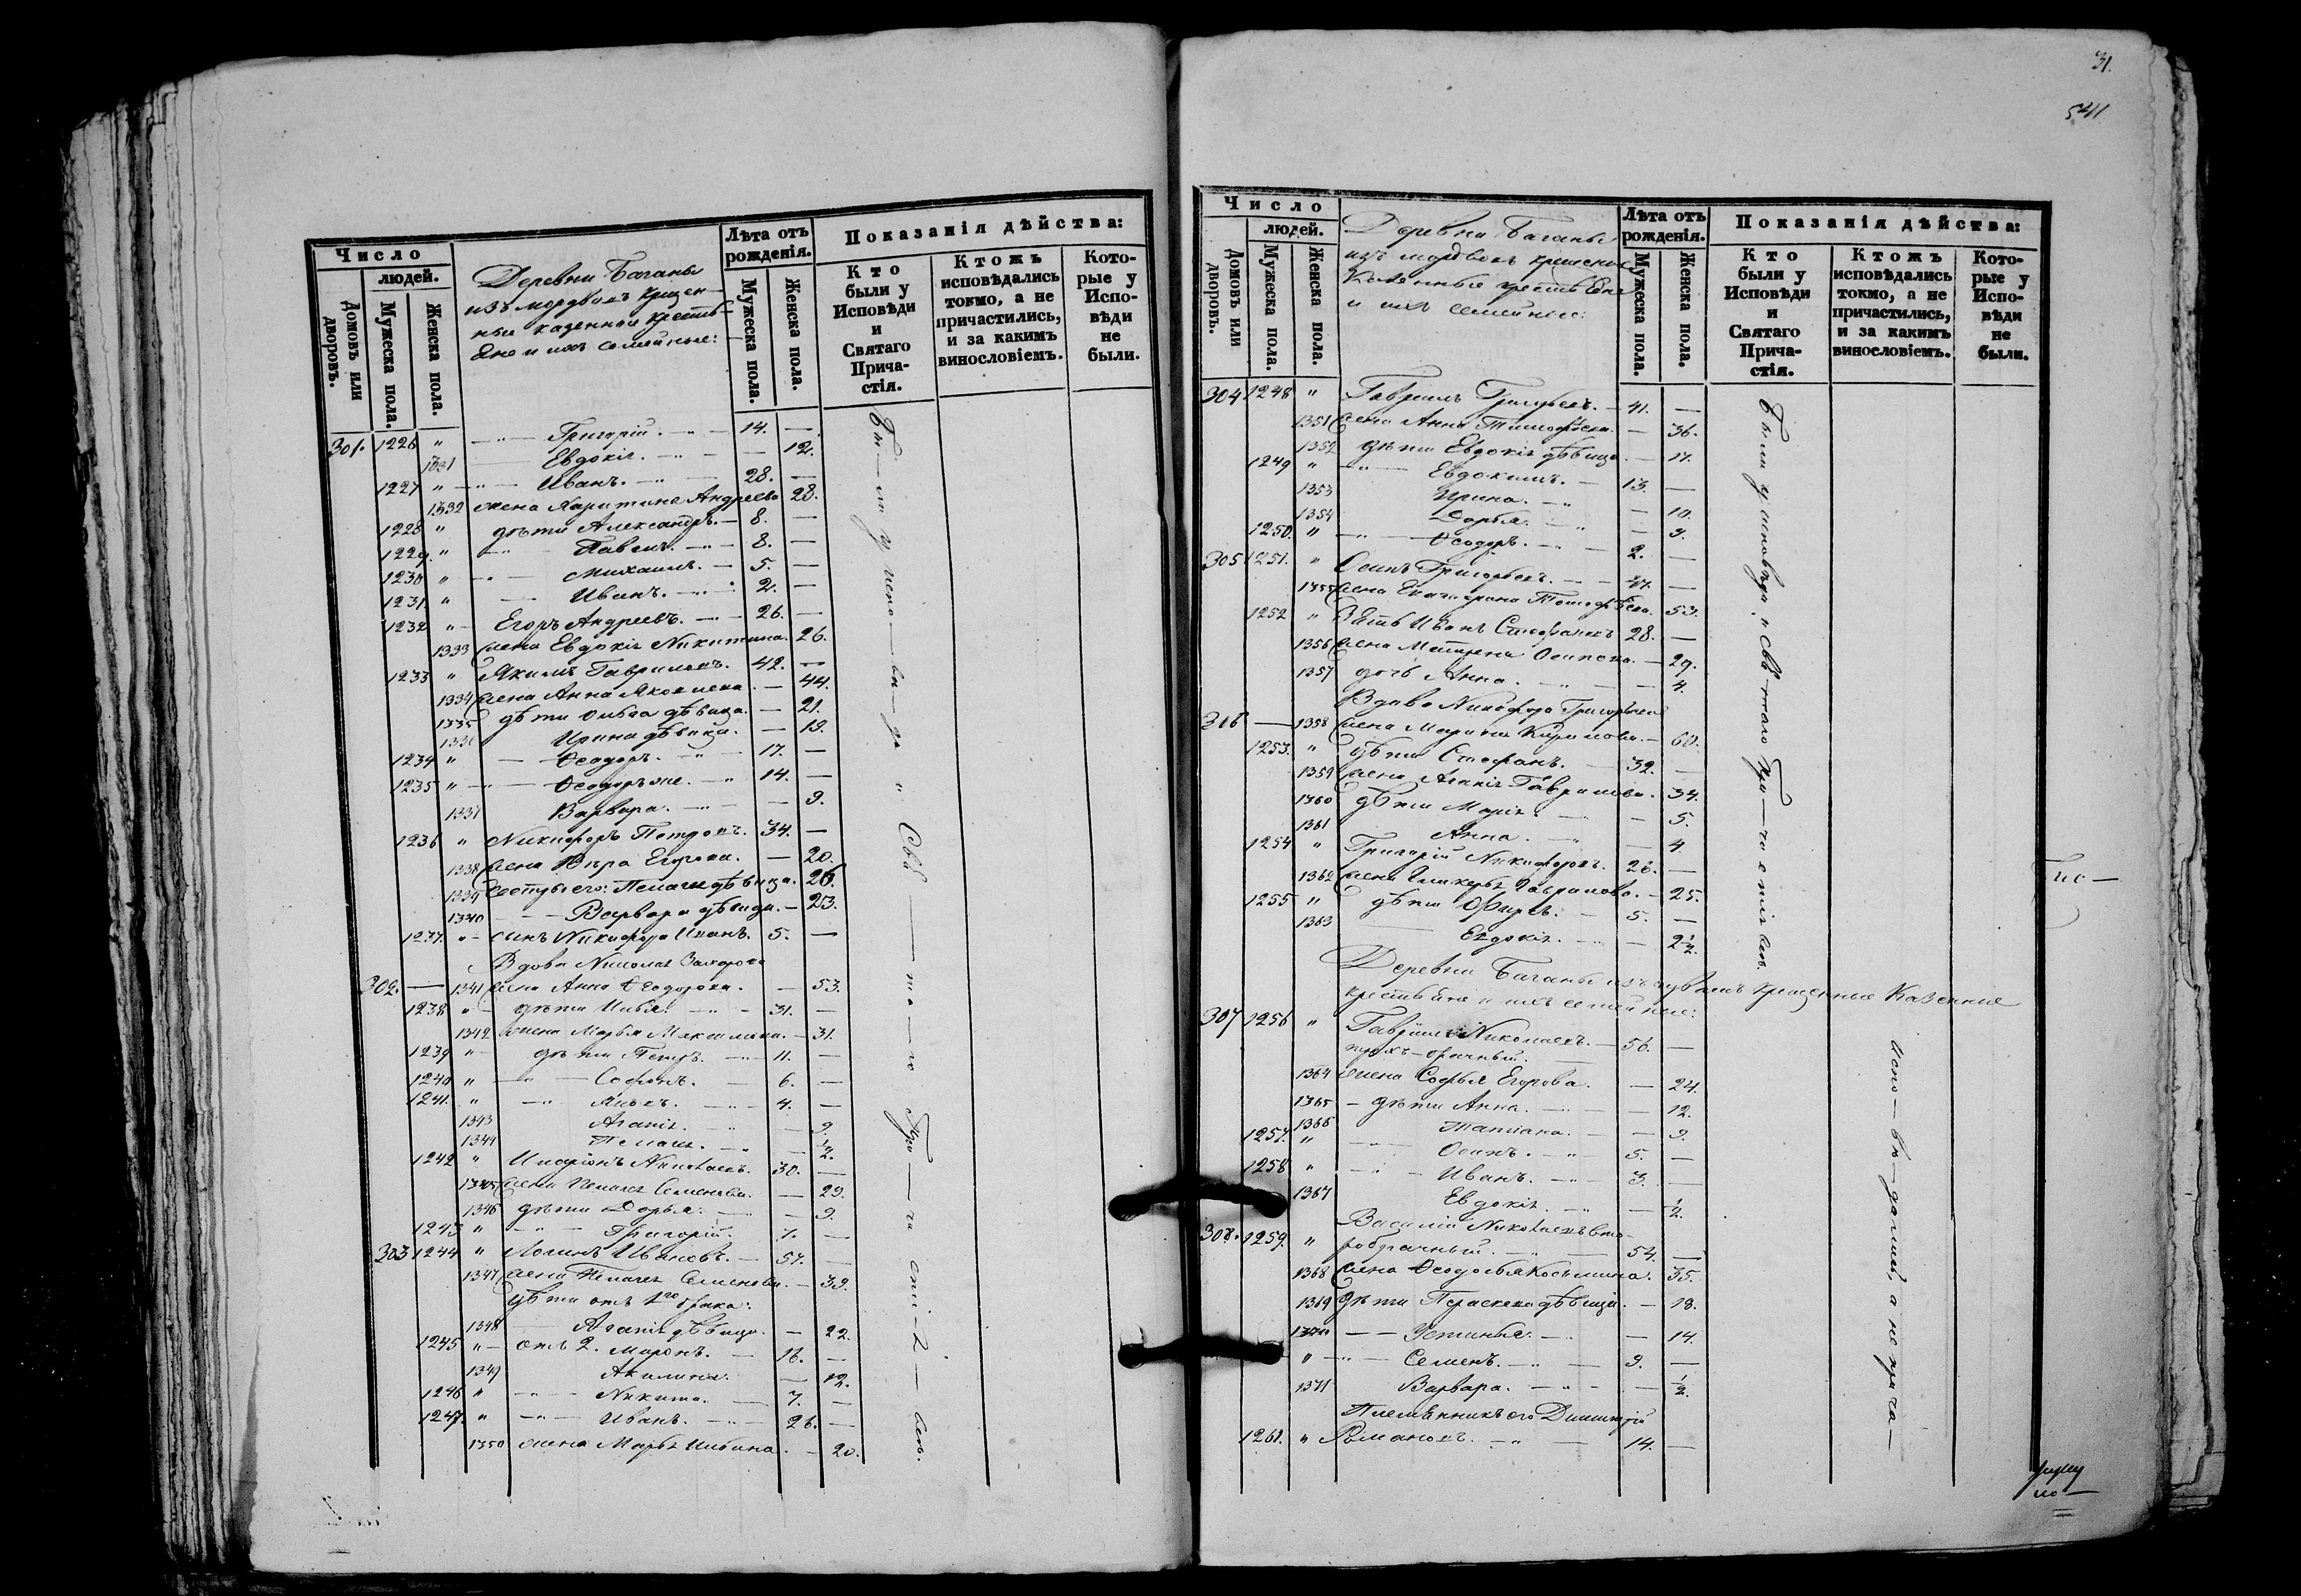 Число
людей.
Домовъ или дворовъ.
Мужеска пола.
Женска пола.
Деревни Баганы
изъ мордвовъ крещен-
ные казенные крестья-
не и ихъ семейные:
Лѣта отъ рожденія.
Мужеска пола.
Женска пола.
Показанія дѣйства:
Кто были у Исповѣди и Святаго Прича-стія.
Ктожъ исповѣдались токмо, а не причастились, и за какимъ винословіемъ.
Кото-рые у Испо-вѣди не были.
301. 1226 " Григорій. 14. —
1331 Евдокія. — 12.
1227 " Иванъ. 28. —
1332 жена Харитина Андреева 28.
1228 " дѣти Александръ. 8. —
1229. " Павелъ. 8. —
1230 " Михаилъ. 5. —
1231. " Иванъ. 2. —
1232 " Егоръ Андреевъ. 26. —
1333 жена Евдокія Никитина. 26.
1233 " Якимъ Гавриловъ. 42. —
1334 жена Анна Яковлева. — 44.
1335 дѣти Ольга дѣвица. — 21.
1336 Ирина дѣвица. — 19.
1234 " Ѳеодоръ. 17. —
1235 " Ѳеодоръ же. 14. —
1337 Варвара. — 9.
1236 " Никифоръ Петровъ. 34. —
1338 жена Вѣра Егорова. — 20.
1339 сестры его: Пелагея дѣвица. 26.
1340 Варвара дѣвица. — 23.
1237. " сынъ Никифора Иванъ. 5. —
Вдова Николая Захарова
302. — 1341 жена Анна Ѳеодорова. — 53.
1238 " дѣти Илья. 31. —
1342 жена Марья Максимова. — 31.
1239 " дѣти Петръ. 11. —
1240 " Софонъ. 6. —
1241. " Яковъ. 4. —
1343 Агапія. — 9
1344 Пелагея. — 1/2.
1242 " Иларіонъ Николаевъ. 30. —
1345 жена Пелагея Семенова. — 29.
1346 дѣти Дарья. — 9.
1243 " Григорій. 7. —
303 1244 " Логинъ Ивановъ. 57. —
1347 жена Пелагея Семенова. — 39.
дѣти отъ 1го брака:
1348 Агапія дѣвица. — 22.
1245 " отъ 2. Миронъ. 16. —
1349 Акилина. — 12.
1246 " Никита. 7. —
1247. " Иванъ. 26. —
1350 жена Марья Ильина. — 20.
Бы — ли у испо — вѣ — ди и Свя — та — го При — ча — стія — всѣ.
31.
541
Число
людей.
Домовъ или дворовъ.
Мужеска пола.
Женска пола.
Деревни Баганы
изъ мордвовъ крещеные
Казенные крестьяне
и ихъ семейные:
Лѣта отъ рожденія.
Мужеска пола.
Женска пола.
Показанія дѣйства:
Кто были у Исповѣди и Святаго Прича-стія.
Ктожъ исповѣдались токмо, а не причастились, и за какимъ винословіемъ.
Кото-рые у Испо-вѣди не были.
304 1248 " Гаврилъ Григорьевъ. 41. —
1351 жена Анна Тимофѣева. — 36.
1352 дѣти Евдокія дѣвица. — 17.
1249 " Евдокимъ. 13. —
1353 Ирина. — 10.
1354 Дарья. — 9.
1250. " Ѳеодоръ. 2. —
305 1251. " Осипъ Григорьевъ. 47. —
1355 жена Екатерина Тимофѣева. 53.
1252 " Зять Иванъ Стефановъ 28. —
1356 жена Матрена Осипова. — 29.
1357 дочь Анна. — 4.
Вдова Никифора Григорьева
306 — 1358 жена Марина Кирилова. — 60.
1253. " дѣти Стефанъ. 32. —
1359 жена Агапія Гаврилова. 34.
1360 дѣти Марія. — 5.
1361 Анна. — 4.
1254 " Григорій Никифоровъ. 26. —
1362 жена Гликерья Гаврилова. — 25.
1255 " дѣти 5. —
1363 Евдокія. — 2 1/2.
Деревни Баганы изъ чувашъ крещенные Казенные
крестьяне и ихъ семейные:
307 1256 " Гаврилъ Николаевъ. 56. —
трех-брачный.
1364 жена Софья Егорова. — 24.
1365 дѣти Анна. — 12.
1366 Татіана. — 9.
1257. " Осипъ. 5. —
1258 " Иванъ. 3. —
1367 Евдокія. — 1/2.
Василій Николаевъ вто-
308. 1259. " робрачный. 54. —
1368 жена Ѳеодосья Косьмина. 35.
1369 дѣти Параскева дѣвица. — 18.
1370 Устинья. — 14.
" Семенъ. 9. —
1371 Варвара. — 1/2.
Племянникъ его Димитрій
1261. " Романовъ. 14. —
Были у исповѣди и Святаго При — частія всѣ.
испо — вѣ — дались, а не прича —